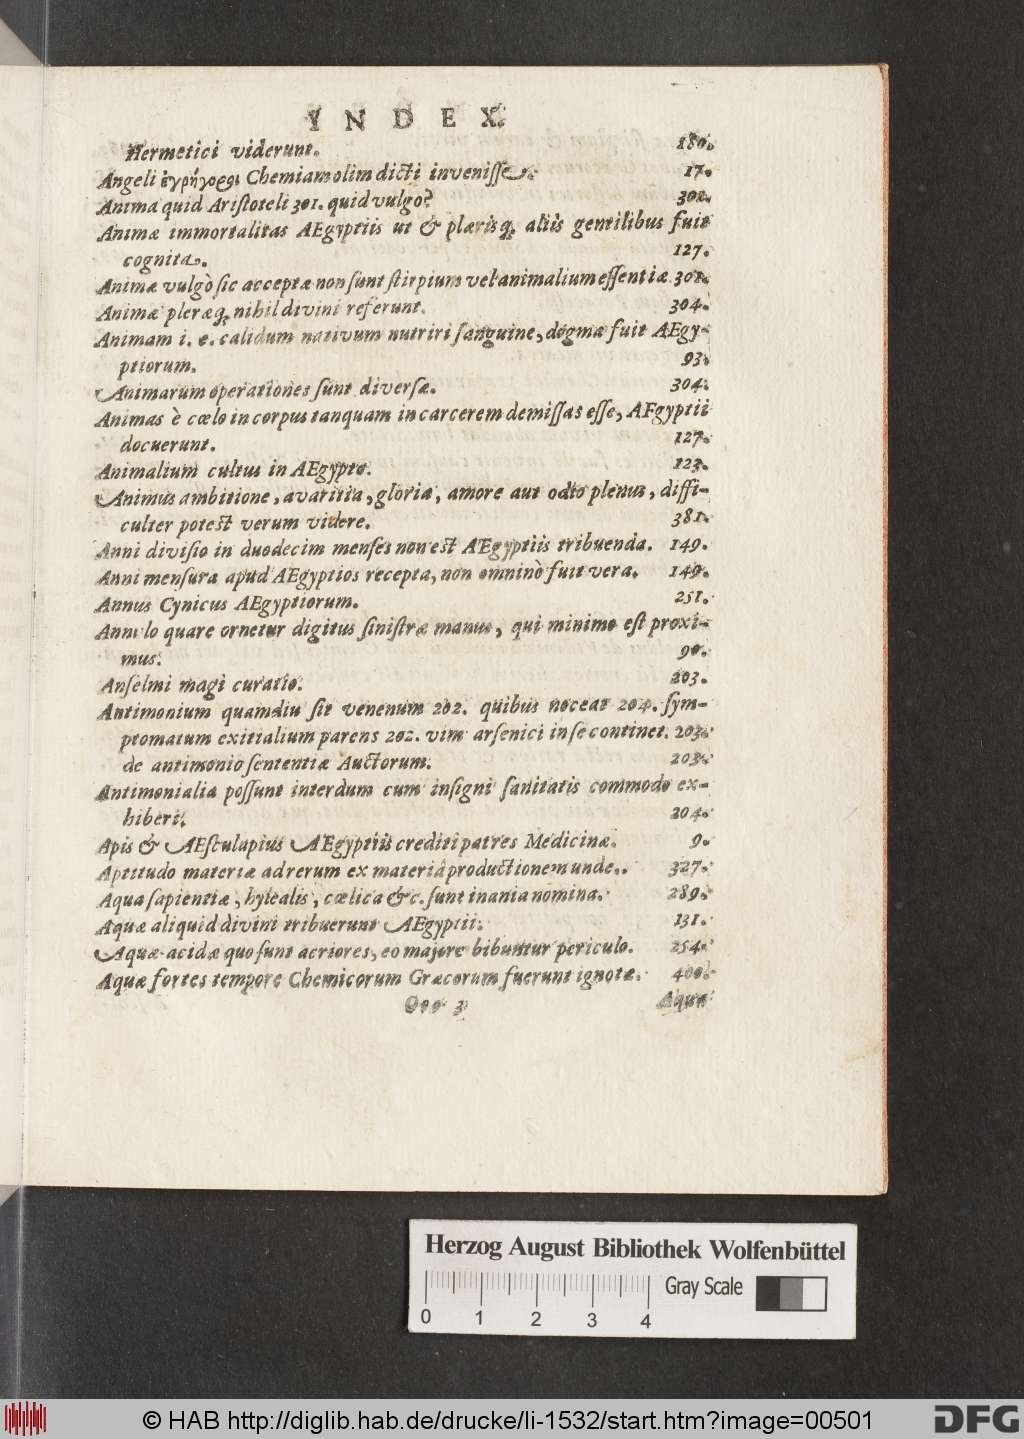 INDEX.
Hermetici viderunt. 180.
Angeli ἐγρήγοροι Chemiam olim dicti invenisse. 17.
Anima quid Aristoteli 301. quid vulgo? 302.
Animæ immortalitas AEgyptiis ut & plærisq; aliis gentilibus fuit
cognita. 127.
Animæ vulgò sic acceptæ non sunt stirpium vel animalium essentiæ 301.
Animæ pleræq; nihil divini referunt. 304.
Animam i. e. calidum nativum nutriri sanguine, dogma fuit AEgy-
ptiorum. 93.
Animarum operationes sunt diversæ. 304.
Animas è cœlo in corpus tanquam in carcerem demissas esse, AEgyptii
docuerunt. 127.
Animalium cultus in AEgypto. 123.
Animus ambitione, avaritia, gloria, amore aut odio plenus, diffi-
culter potest verum videre. 381.
Anni divisio in duodecim menses non est AEgyptiis tribuenda. 149.
Anni mensura apud AEgyptios recepta, non omninò fuit vera. 149.
Annus Cynicus AEgyptiorum. 251.
Annulo quare ornetur digitus sinistræ manus, qui minimo est proxi-
mus. 90.
Anselmi magi curatio. 203.
Antimonium quamdiu sit venenum 202. quibus noceat 204. sym-
ptomatum exitialium parens 202. vim arsenici in se continet. 203.
de antimonio sententiæ Auctorum. 203.
Antimonialia possunt interdum cum insigni sanitatis commodo ex-
hiberi. 204.
Apis & AEsculapius AEgyptiis crediti patres Medicinæ. 9.
Aptitudo materiæ ad rerum ex materiâ productionem unde. 327.
Aqua sapientiæ, hylealis, cœlica &c. sunt inania nomina. 289.
Aquæ aliquid divini tribuerunt AEgyptii. 131.
Aquæ acidæ quo sunt acriores, eo majore bibuntur periculo. 254.
Aquæ fortes tempore Chemicorum Græcorum fuerunt ignotæ. 400.
Ooo 3 Aquæ
Herzog August Bibliothek Wolfenbüttel
Gray Scale
0 1 2 3 4
© HAB http://diglib.hab.de/drucke/li-1532/start.htm?image=00501
DFG